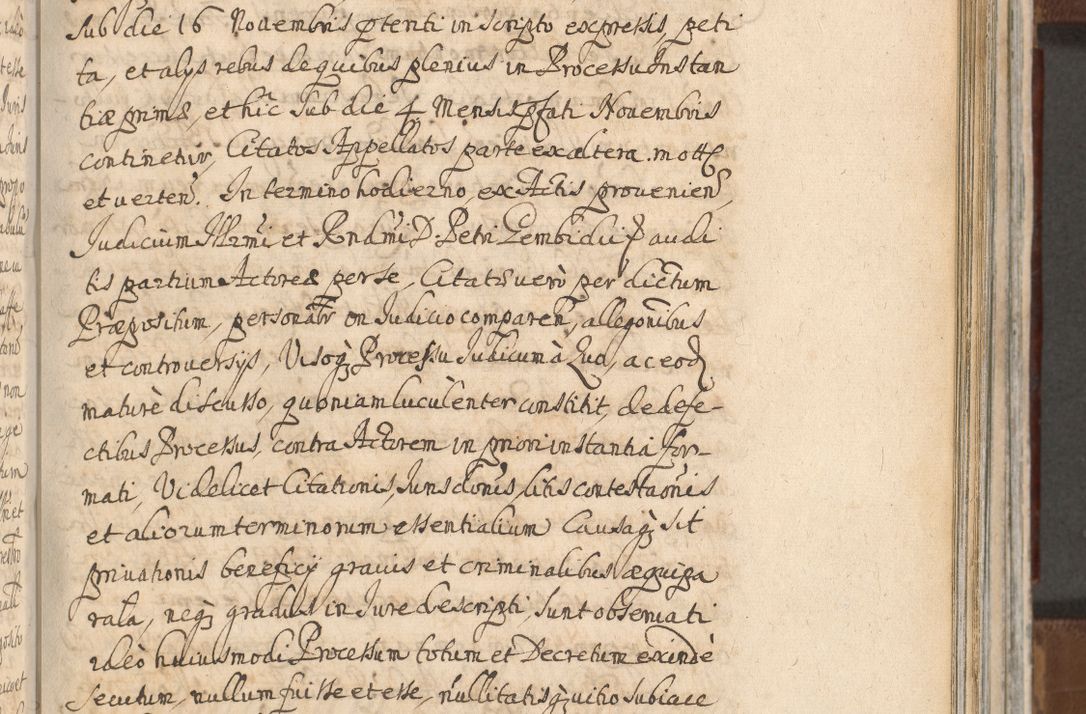 sub die 16 Novembris ptenti in scripto expressis, peti
ta, et alys rebus de quibus plenius in Processu Instan
tiæ primæ, et hic sub die 4 Mensis pfati Novembris
continetur, Citatos Appellatos parte ex altera mott
et uerten. In termino hodierno, ex Actis prouenien,
Judicium Illrmi et Rndmi D. Petri Gembicki audi
tis partium Actorea per se, Citatos uerò per dictum
Præpositum, personalr in Judicio comparen, allegonibus
et controuersys, Visoq Processu Judicum à Quo, ac eod
maturè discusso, quoniam luculenter constitit de defe-
ctibus Processus, contra Actorem in priori instantia for-
mati, Videlicet Citationis, Jurisdonis, litis contestaonis
et aliorum terminorum essentialium Causaq sit
priuationis beneficy grauis et criminalibus æquipa
rata, neq gradus in Jure descripti, sunt obseruati
ideò huiusmodi Processum totum et Decretum exindè
secutum, nullum fuisse et esse, nullitatisq uitio subiace